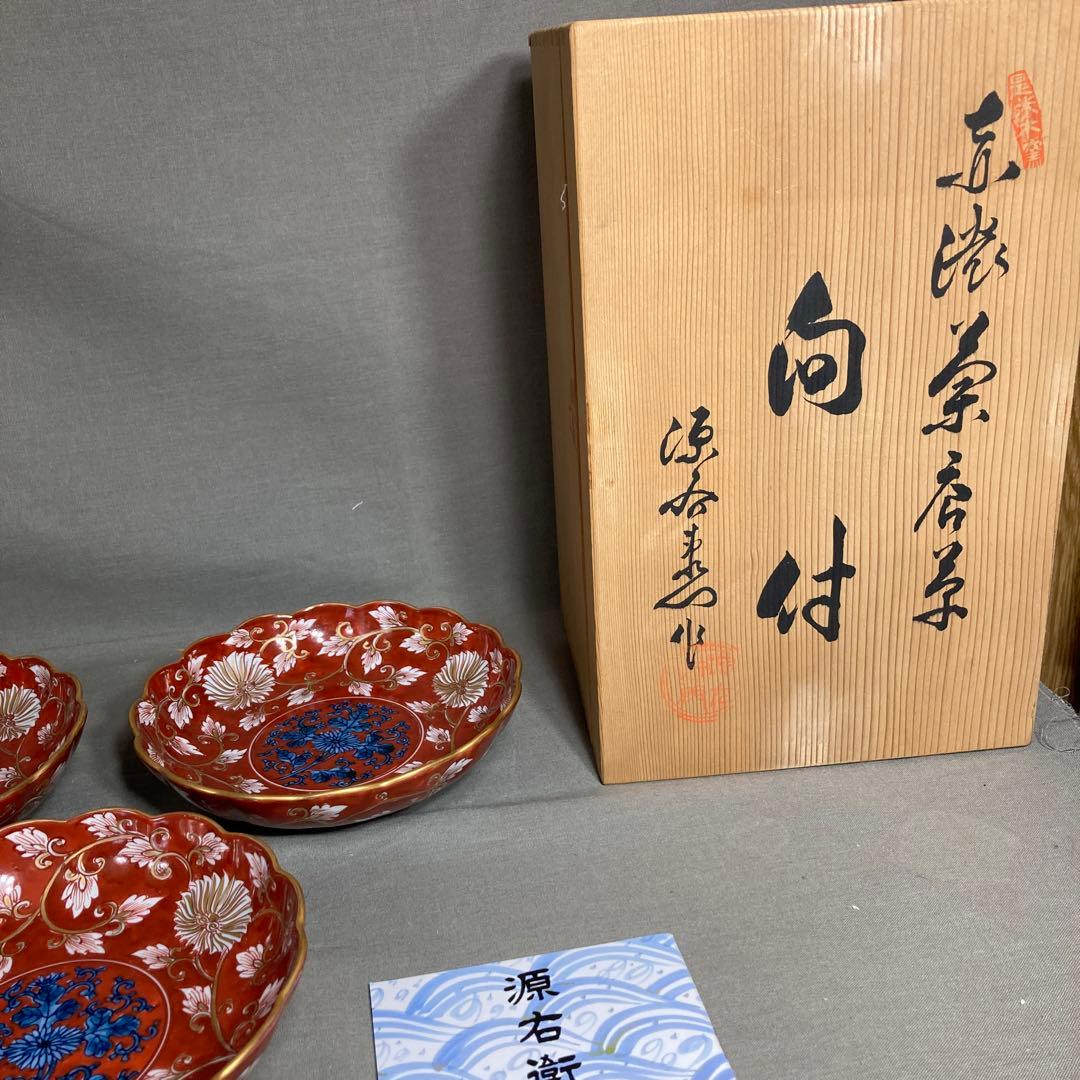 赤濃菊唐草
向付
源右衛門作
源右衛